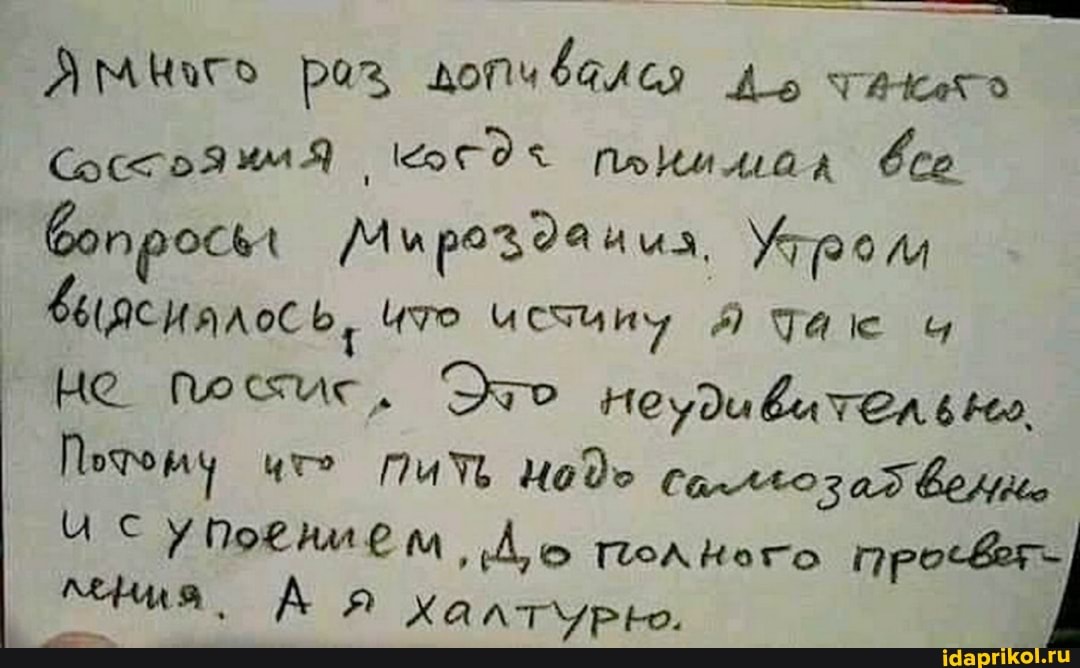 Я много раз допивался до такого
состояния, когда понимал все
вопросы Мироздания. Утром
выяснялось, что истину я так и
не постиг. Это неудивительно.
Потому что пить надо самозабвенно
и с упоением. До полного просвет-
ления. А я халтурю.
idaprikol.ru